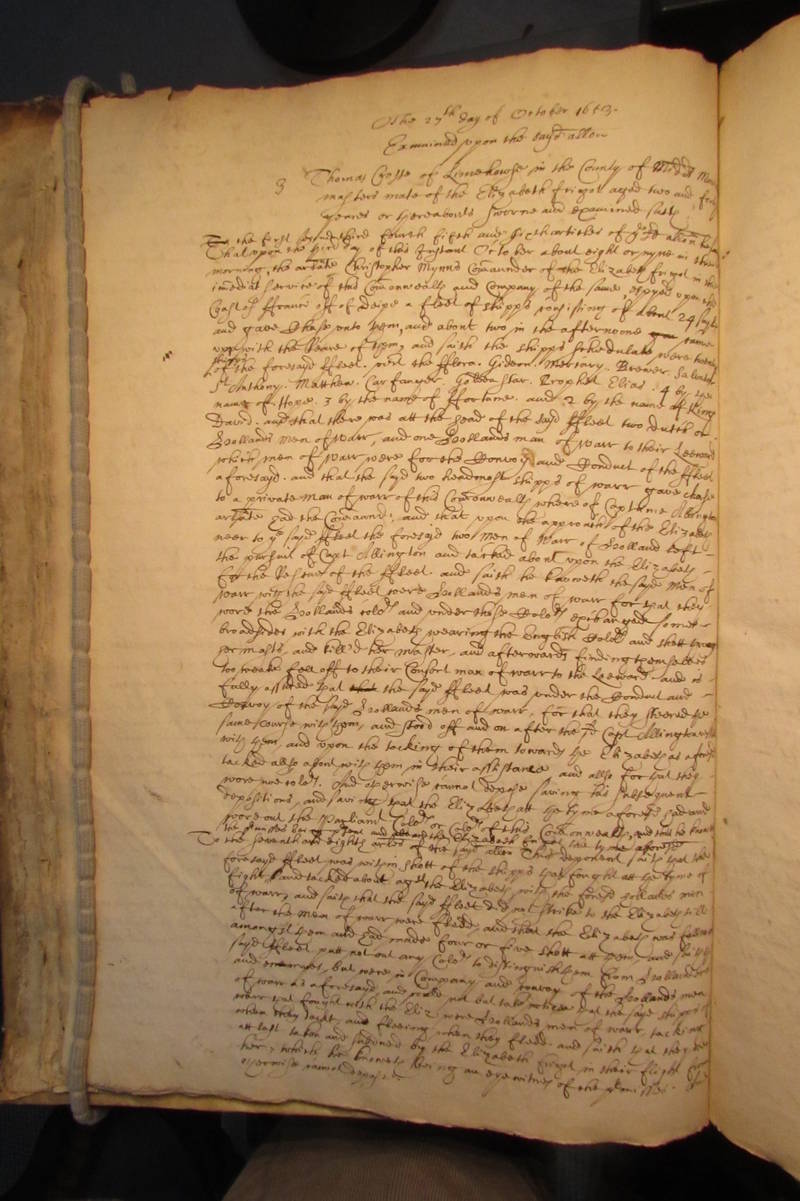 The 27th day of October 1653.
Examined upon the sayd allon
3 Thomas Coste of Limehowse in the County of Midds
masters mate of the Elizabeth frigot aged two and
yeares or thereabouts sworne and examined saith
To the first second third fourth fifth and sixth articles of the sayd allon
That upon the third day of this instant October about eight or nyne in the
morning, the arlate Christopher Mynns Comaunder of the Elizabeth frigot in the
imediate service of this Comonwealth and Company of the same, espyed upon the
Coast of ffrance off of deipe a fleet of shipps consisting of about 24 sayle
and gave Chase unto them, and about two in the afternoone came
upp with the Reare of them, and saith the shipps schedulate were
shipps of the foresayd ffleet. vizt the fflora. Gideon. Mercury. Brewer. Salvator
St Anthony. Matthew. Carfanger. Golden Star. Prophet Elias. 4 by the
name of Hope. 3 by the name of ffortune. and 2 by the name of King
David. and that there was att the head of the sayd ffleet two dutch or
Hollands men of warr, and one Hollands man of warr to their Leeward
which men of warr were for the Convoy and Conduct of the ffleet
aforesayd. and that the sayd two headmost shipps of warr gave chase
to a private man of warr of this Comonwealth whereof Captaine Allington
arlate had the Comaund, and that upon the approach of the Elizabeth
neer to ye sayd ffleet the foresayd two Men of Warr of Holland left
the pursuit of Capt Allington and tacked about upon the Elizabeth
for the Rescue of the ffleet. and saith he knoweth the sayd Men of
warr with the sayd ffleet were Hollands men of warr for that they
wore the Hollands colors and under those Colors exchanged some
broadsides with the Elizabeth wearing the English Colors and shott
her masts, and killed her master, and afterwards finding themselves
too weake fell off to their Consort man of warr to the Leeward. and is
fully assured that the sayd ffleet was under the Conduct and
Convoy of the sayd Hollands men of warr, for that they steered the
same course with them, and stood off and on after the sd Capt Allington
with them, and upon the tacking of them towards the Elizabeth as aforesd
tacked also about with them in their assistance, and allso for that they
wore noe colors. And otherwise cannot depose saving his subsequent
depositions, and saving that the Elizabeth att the tyme aforesd had and
wore out the Parliamt Colors or Colors of this Comonwealth, and that he knoweth
the premisses being present and aboard the Elizabeth frigot the tyme aforesd
To the seventh and eighth arles of the sayd allon This deponent saith that the
foresayd ffleet was within shott of the shipps that fought att the tyme of
fight and tacked about agst the Elizabeth with the foresd Hollands men
of warr, and saith that the sayd ffleet did not strike to the Elizabeth till
after the men of warr were fledd, and that the Elizabeth was fallen
amongst them and had made four or five shott att them, and saith the
sayd ffleet putt not out any Colors to distinguish them from Hollanders
and enemyes, but were in Company and convoy of the Hollands men
of warr as aforesayd, and could not but take notice that the sayd shipps of
warr that fought with the Eliz. were Hollands men of warr, tacking
when they tackt, and fleeing when they fledd. and saith that they were
att last taken and subdued by the Elizabeth frigot in their flight from
her, which he knoweth being an eye witnes of the premisses. And
otherwise cannot depose.